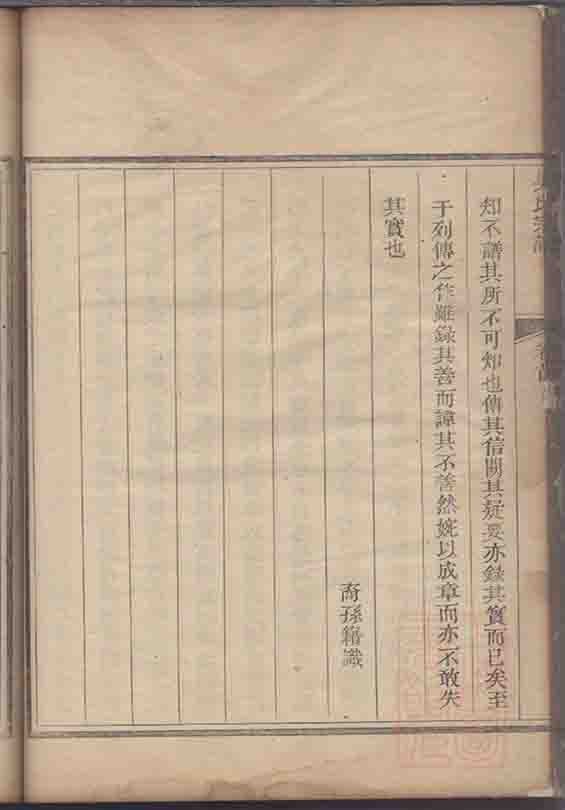 氏宗譜
知不譜其所不可知也傳其信闕其疑要亦錄其實而已矣至
于列傳之作雖錄其善而諱其不善然婉以成章而亦不敢失
其實也
裔孫籍識